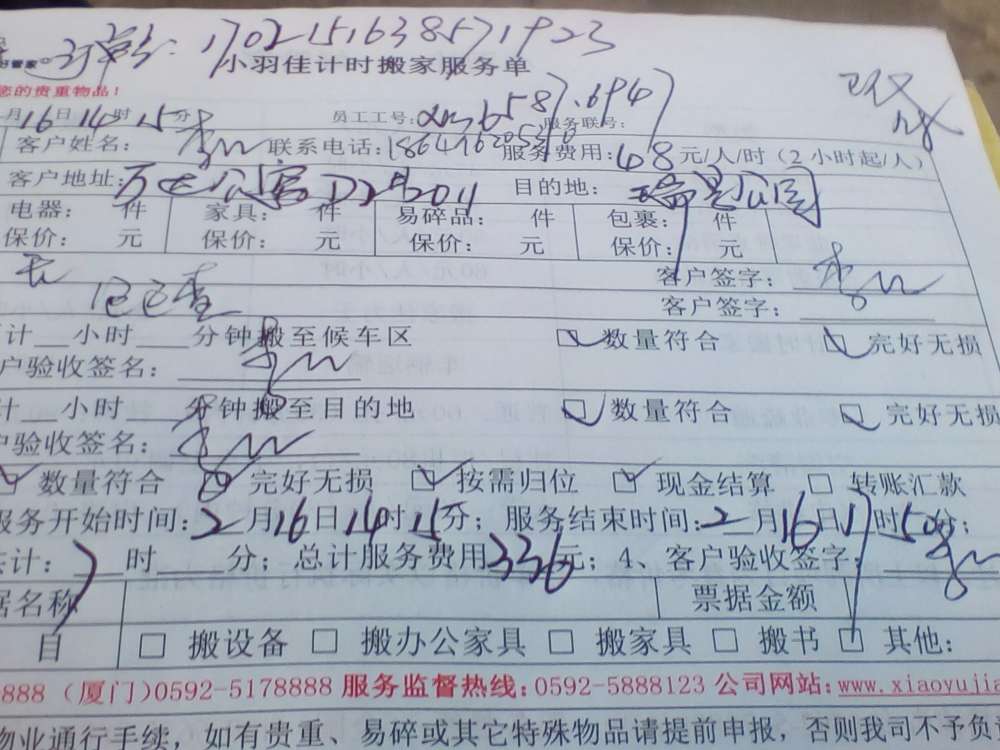 订单号: 1702151638571923
好管家
小羽佳计时搬家服务单
您的贵重物品!
月16日14时15分 员工工号: 服务联号:
客户姓名: 联系电话: 服务费用: 48元/人/时(2小时起/人)
客户地址: 公寓 目的地: 瑞景公园
电器: 件 家具: 件 易碎品: 件 包裹: 件
保价: 元 保价: 元 保价: 元 保价: 元
无 客户签字:
已检查 客户签字:
计 小时 分钟搬至候车区 数量符合 完好无损
户验收签名:
计 小时 分钟搬至目的地 数量符合 完好无损
户验收签名:
数量符合 完好无损 按需归位 现金结算 转账汇款
服务开始时间: 2月16日14时15分; 服务结束时间: 2月16日17时50分;
共计: 7时 分; 总计服务费用336元; 4、客户验收签字:
据名称 票据金额
目 搬设备 搬办公家具 搬家具 搬书 其他:
888 (厦门)0592-5178888 服务监督热线:0592-5888123 公司网站:www.xiaoyujia
物业通行手续,如有贵重、易碎或其它特殊物品请提前申报,否则我司不予负